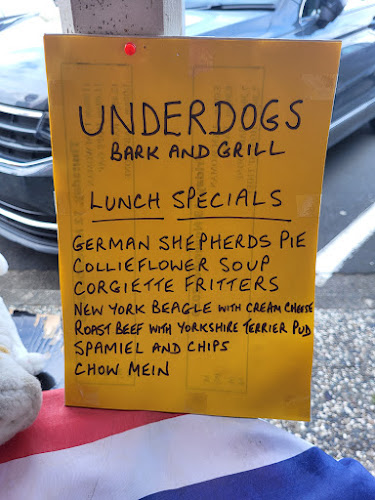 UNDERDOGS
BARK AND GRILL
LUNCH SPECIALS
GERMAN SHEPHERDS PIE
COLLIEFLOWER SOUP
CORGIETTE FRITTERS
NEW YORK BEAGLE WITH CREAM CHEESE
ROAST BEEF WITH YORKSHIRE TERRIER PUD
SPAMIEL AND CHIPS
CHOW MEIN